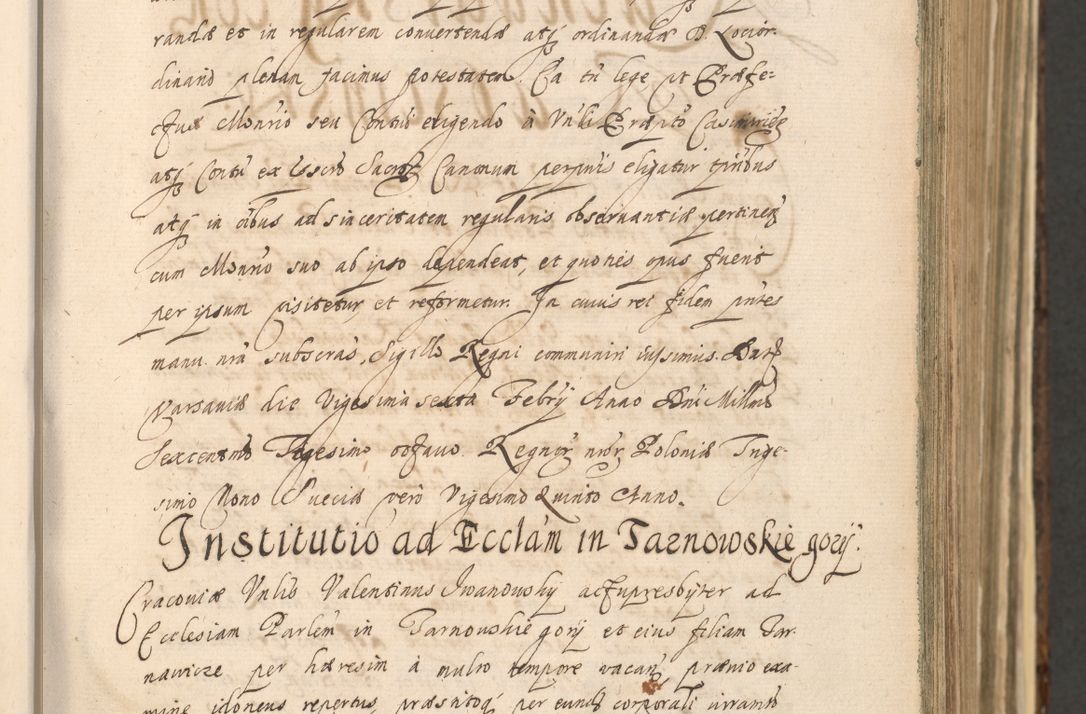 randæ et in regularem conuertendæ atq ordinandæ D. Locior
dinario plenam facimus potestatem. Ea tn lege ut Præfe-
ctus Monrio seu Contui eligendo à Vnli Præpto Casimirien
atq Contu ex Usero Sacror Canonum perpuis eligatur tpribus
atq in oibus ad sinceritatem regularis obseruantiæ pertinen
cum Monrio suo ab ipso dependeat, et quoties opus fuerit
per ipsum visitetur et reformetur. In cuius rei fidem pntes
manu nra subscras, Sigillo Regni communiri iussimus. Dat
Varsauiæ die Vigesima sexta Febrij Anno Dni Millmo
Sexcentmo Trigesimo octauo. Regnor nror Poloniæ Trige-
simo Nono Sueciæ vero Vigesimo Quinto Anno.
Institutio ad Ecclam in Tarnowskie gory.
Cracouiæ Vnlis Valentinus Iwanowsky actupresbyter ad
Ecclesiam Parlem in Tarnowskie gory et eius filiam Tar-
nauicze per hæresim à multo tempore vacan, præuio exa-
mine idoneus repertus, præsentoq per eund corporali iuramto